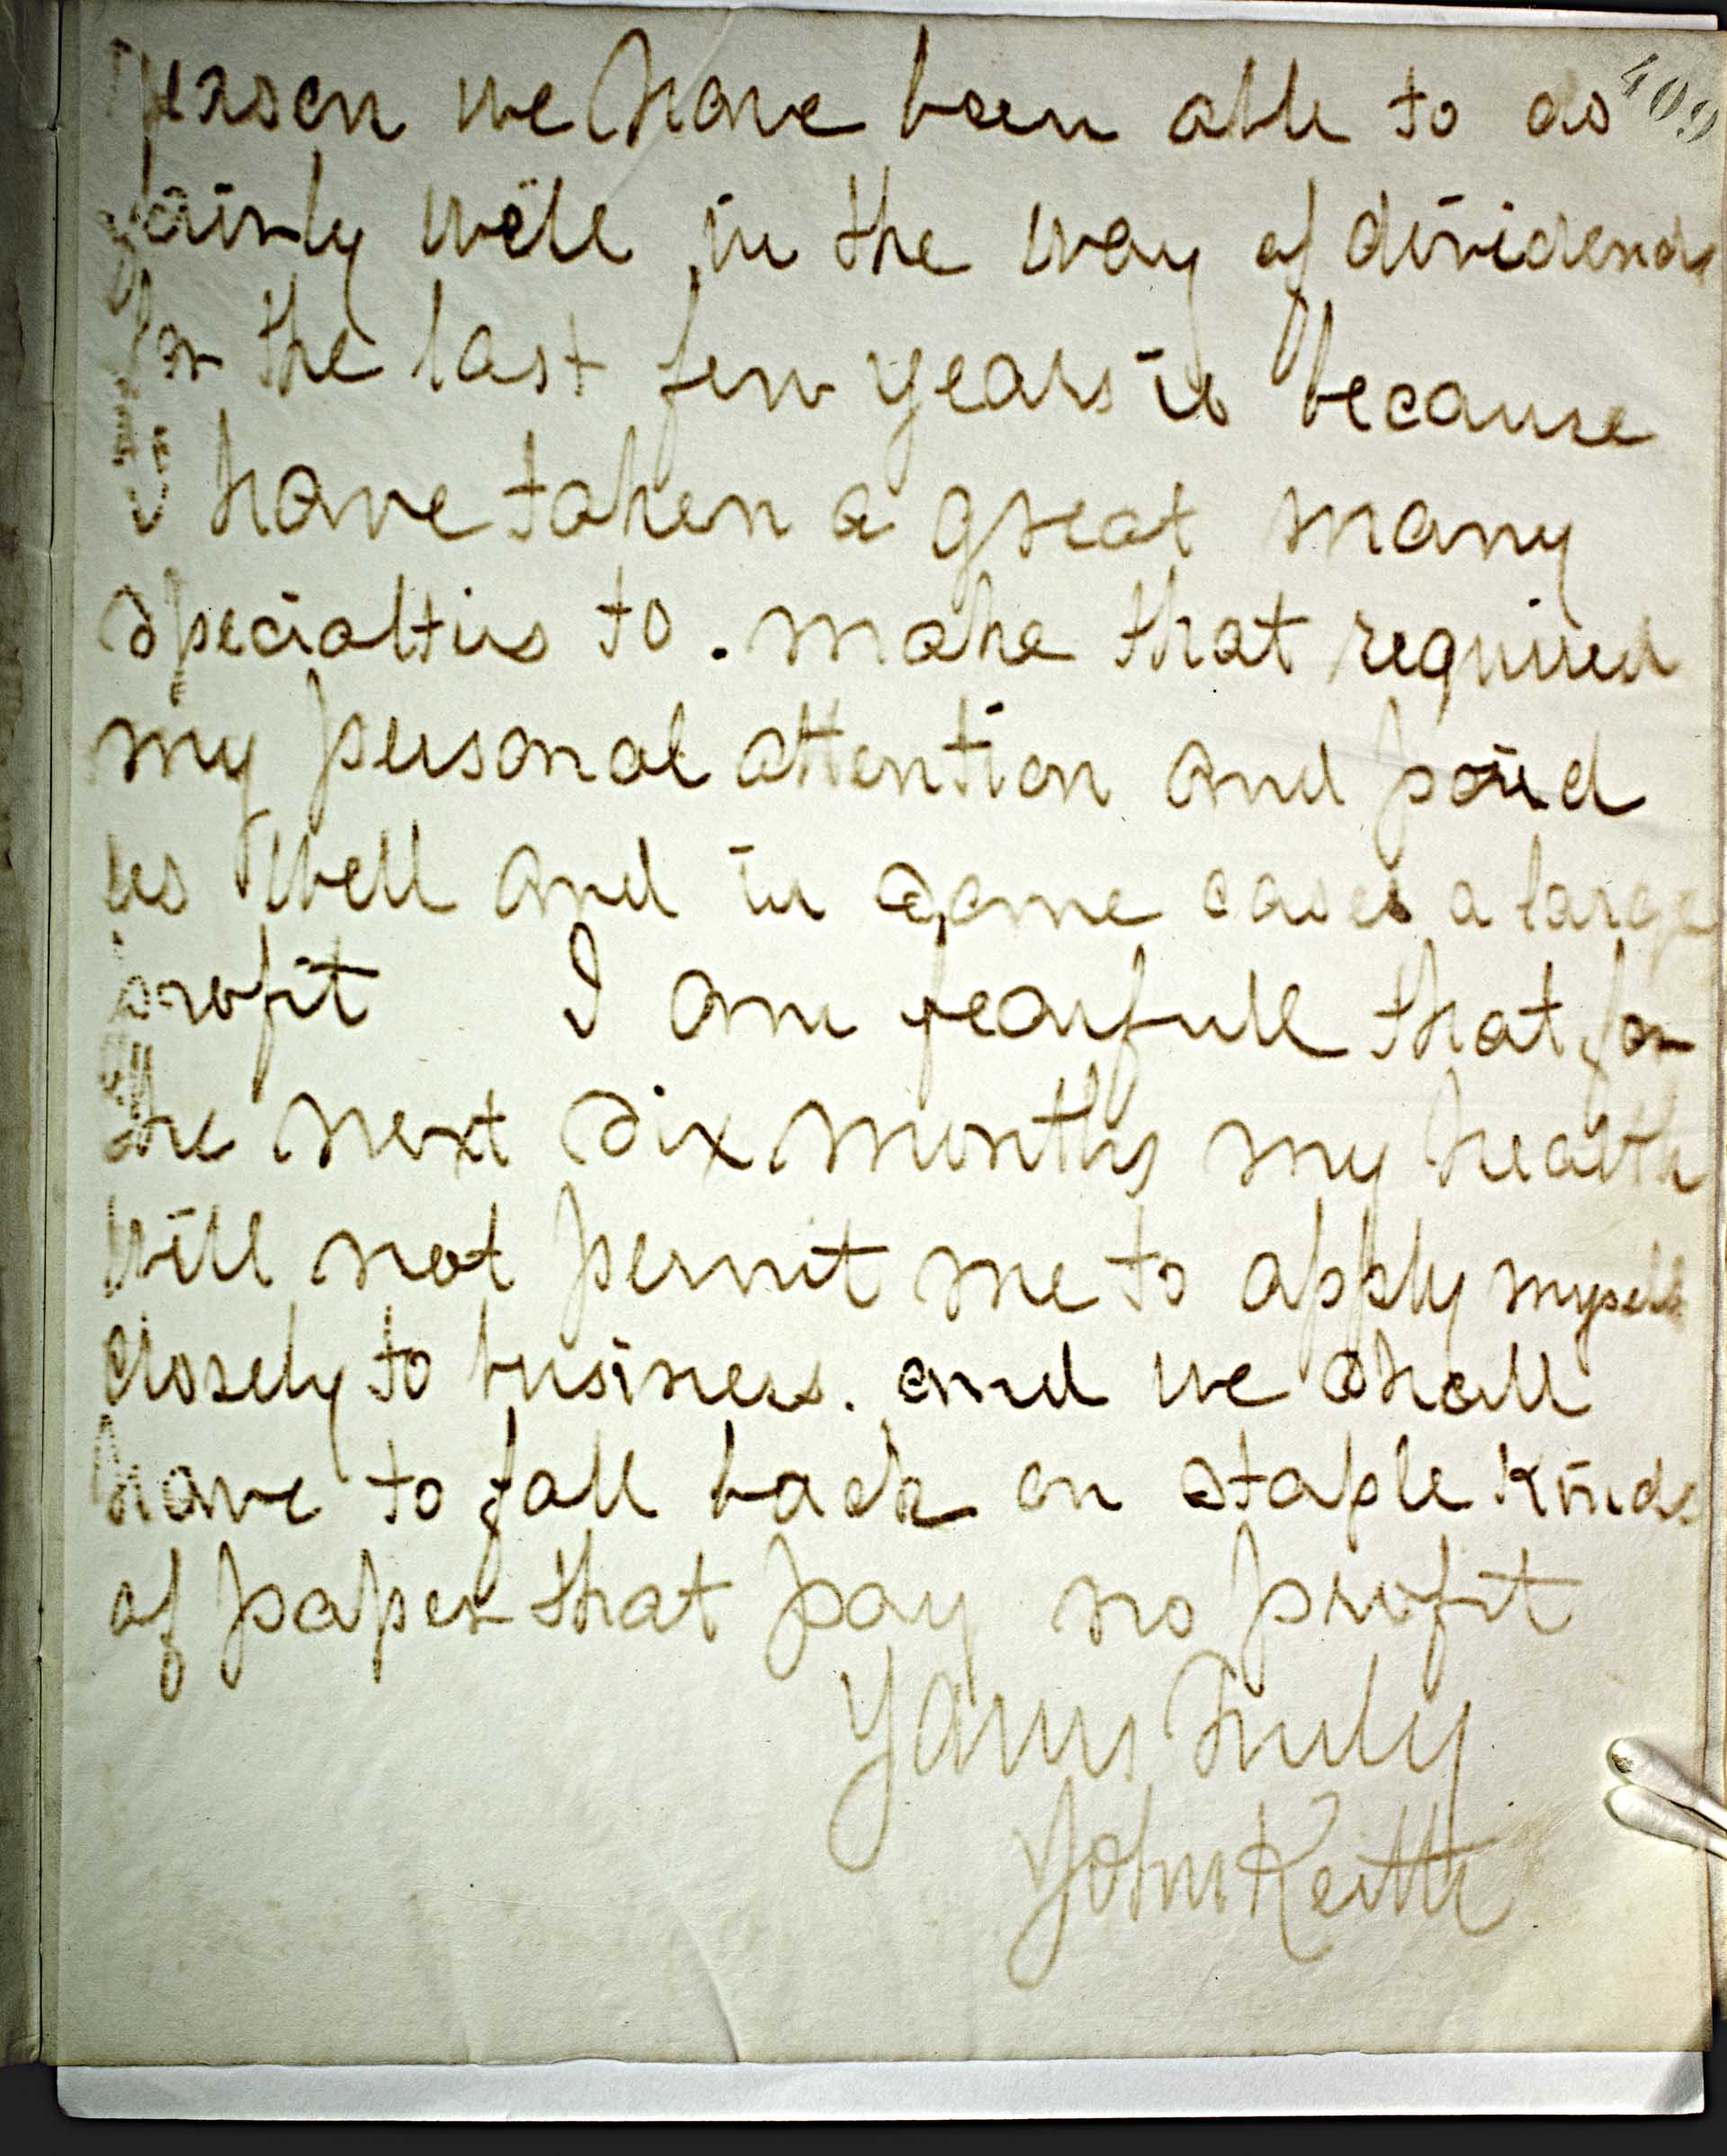 409
reason we have been able to do
fairly well in the way of dividends
for the last few years is because
I have taken a great many
specialties to . make that required
my personal attention and paid
us well and in some cases a large
profit I am fearfull that for
the next six months my health
will not permit me to apply myself
closely to business. and we shall
have to fall back on staple kinds
of paper that pay no profit
Yours Truly
John Keith